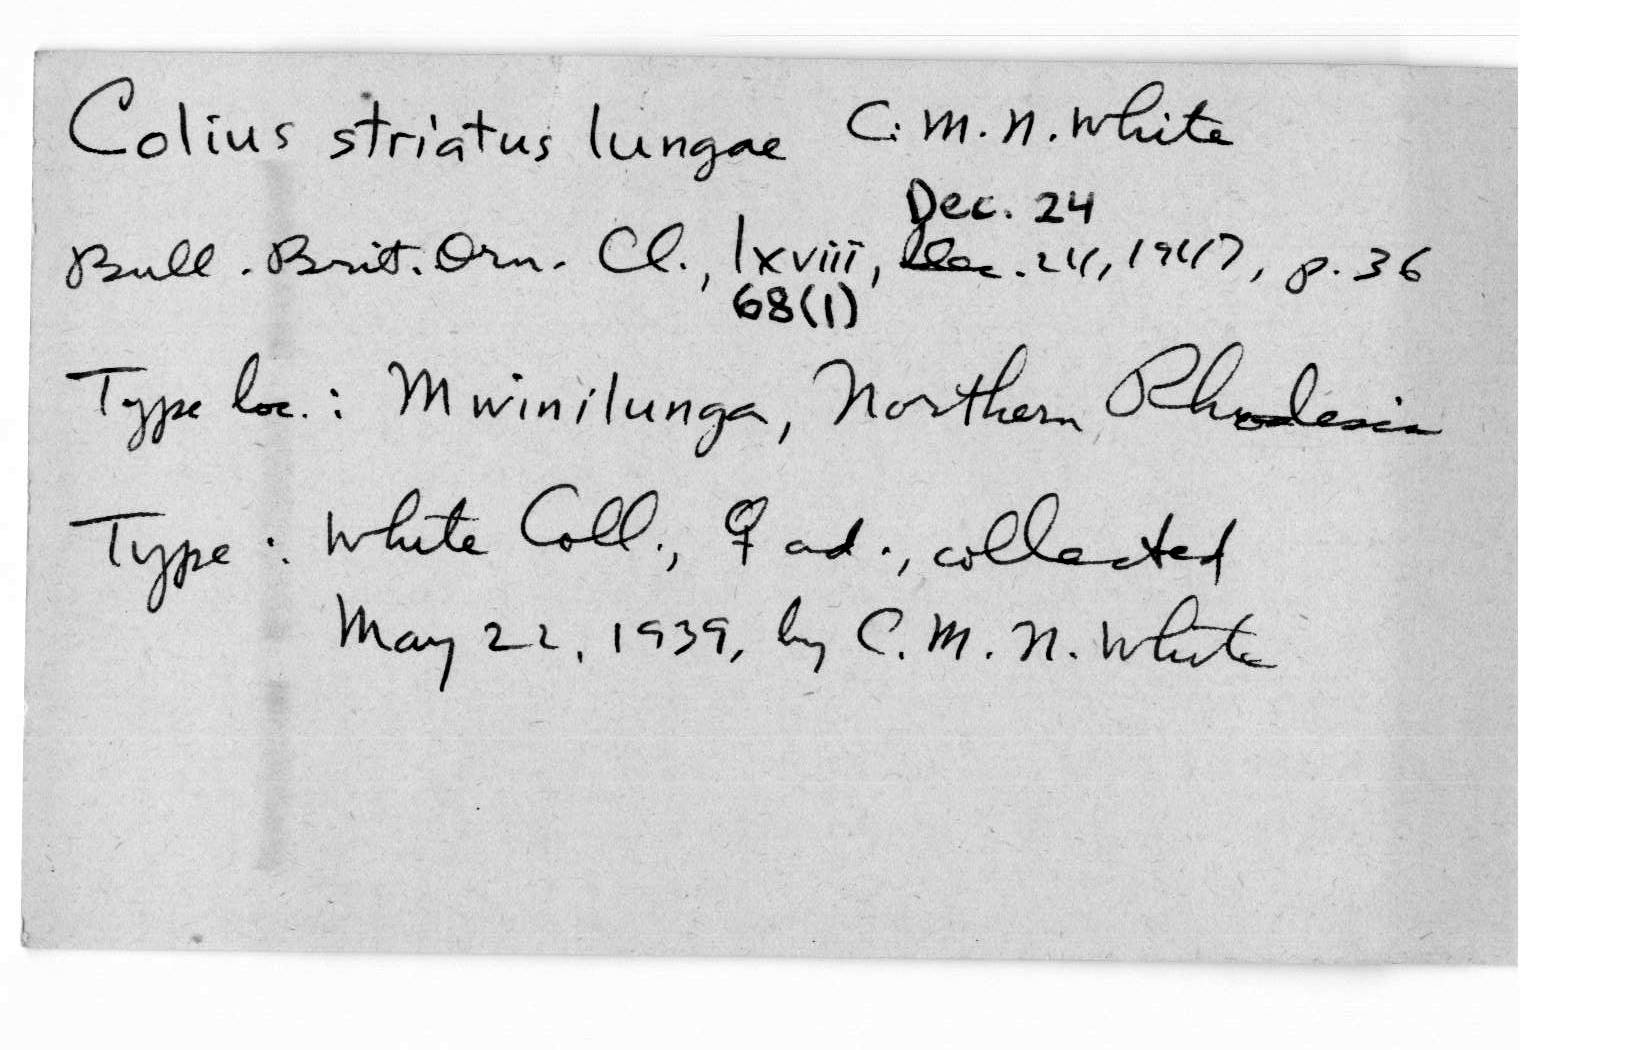 Colius striatus lungae C. M. N. White
Dec. 24
Bull. Brit. Orn. Cl., lxviii, Dec. 24, 1947, p. 36
68(1)
Type loc.: Mwinilunga, Northern Rhodesia
Type: White Coll., ♀ ad., collected
May 22, 1939, by C. M. N. White